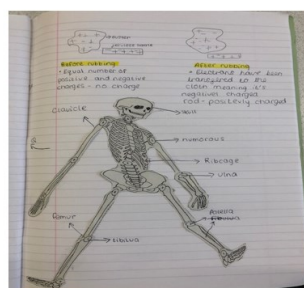 Before rubbing
• Equal number of
positive and negative
charges - no charge
After rubbing
* Electrons have been
transferred to the
cloth meaning it's
negatively charged
rod - positively charged
Clavicle
Skull
humorous
Ribcage
ulna
Femur